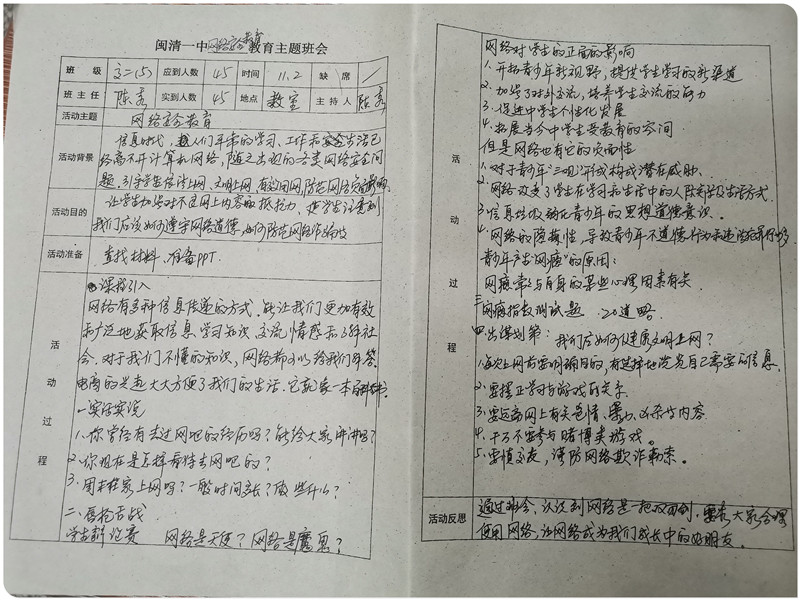 闽清一中网络安全教育主题班会
班级 高二(5) 应到人数 45 时间 11.2 缺席 /
班主任 陈 实到人数 45 地点 教室 主持人 陈
活动主题 网络安全教育
活动背景
信息时代,人们平常的学习、工作和生活已
经离不开计算机网络,随之出现的各类网络安全问
题,引导学生依法上网、文明上网、有效用网,防范网络
活动目的
让学生加强对不良网上内容的抵抗力,使学生认意到
我们应该如何遵守网络道德,如何防范网络
活动准备 查找材料、准备PPT.
活动过程
一课前引入
网络有多种信息传递的方式,能让我们更加有效
和广泛地获取信息、学习知识、交流情感和了解社
会.对于我们不懂的知识,网络都可以给我们解答.
电商的兴起大大方便了我们的生活.它就象一本百科全书.
一实话实说
1、你曾经有去过网吧的经历吗?能给大家讲讲吗?
2、你现在是怎样看待去网吧的?
3、周末在家上网吗?一般时间多长?做些什么?
二、唇枪舌战
学生辩论赛 网络是天使?网络是魔鬼?
活动过程
网络对学生的正面的影响
1、开拓青少年新视野,提供学生学习的新渠道
2、加强了对外交流,培养学生交流的能力
3、促进中学生个性化发展
4、拓展当今中学生受教育的空间
但是网络也有它的负面性
1、对于青少年"三观"形成构成潜在威胁.
2、网络改变了学生在学习和生活中的人际关系及生活方式.
3、信息垃圾弱化青少年的思想道德意识.
4、网络的隐蔽性,导致青少年不道德行为和违法犯罪行为增多
青少年产生"网瘾"的原因:
网瘾常常与自身的某些心理因素有关
三网瘾指数测试题 20道略
四出谋划策:我们应如何健康文明上网?
1、每次上网前要明确目的,有选择地浏览自己需要的信息.
2、要摆正学习与游戏的关系
3、要远离网上有关色情、暴力、凶杀等内容
4、千万不要参与赌博类游戏。
5、要慎交友,谨防网络欺诈勒索。
活动反思
通过班会,认识到网络是一把双刃剑.要求大家合理
使用网络,让网络成为我们成长中的好朋友.